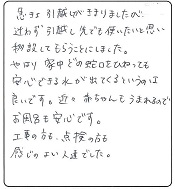 急きょ引越しがきまりましたが、
迷わず引越し先でも使いたいと思い
物設してもらうことにしました。
やはり家中どの蛇口をひねっても
安心できる水が出てくるというのは
良いです。近々赤ちゃんもうまれるので
お風呂も安心です。
工事の方も、点検の方も
感じのよい人達でした。